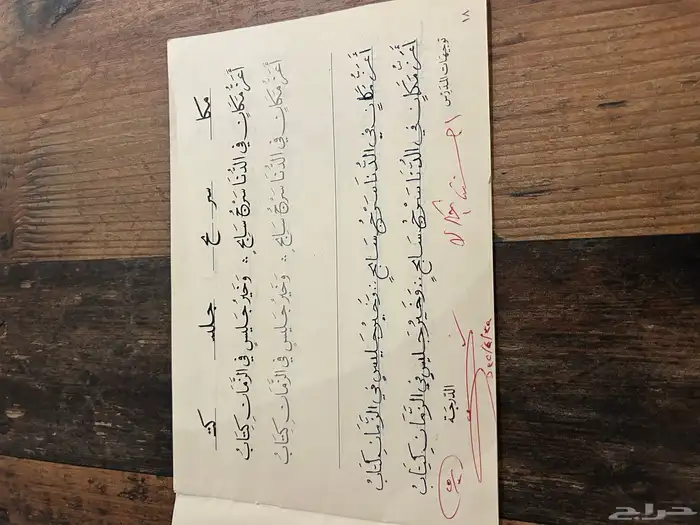 مكا سر ـج جلسـ كتـ
أَعَزُّ مَكَانٍ فِي الدُّنَا سَرْجُ سَابِحٍ ؞ وَخَيْرُ جَلِيسٍ فِي الزَّمَانِ كِتَابُ
أَعَزُّ مَكَانٍ فِي الدُّنَا سَرْجُ سَابِحٍ ؞ وَخَيْرُ جَلِيسٍ فِي الزَّمَانِ كِتَابُ
أَعَزُّ مَكَانٍ فِي الدُّنَا سَرْجُ سَابِحٍ ؞ وَخَيْرُ جَلِيسٍ فِي الزَّمَانِ كِتَابُ
أَعَزُّ مَكَانٍ فِي الدُّنَا سَرْجُ سَابِحٍ ؞ وَخَيْرُ جَلِيسٍ فِي الزَّمَانِ كِتَابُ
توجيهات المدرس الدرجة
١٨
حراج